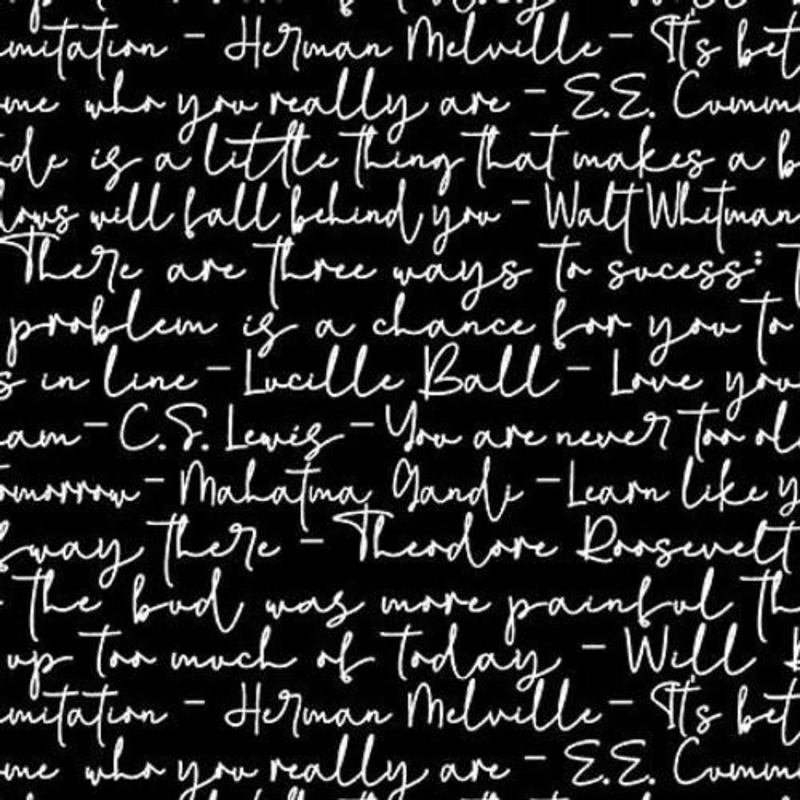 mitation - Herman Melville - It's bet
me who you really are - E.E. Cumm
de is a little thing that makes a b
dows will fall behind you - Walt Whitman
There are three ways to sucess: T
problem is a chance for you to
s in line - Lucille Ball - Love you
am - C.S. Lewis - You are never too ol
omorrow - Mahatma Gandi - Learn like y
fway there - Theodore Roosevelt
the bud was more painful th
up too much of today - Will R
mitation - Herman Melville - It's bet
me who you really are - E.E. Cumm